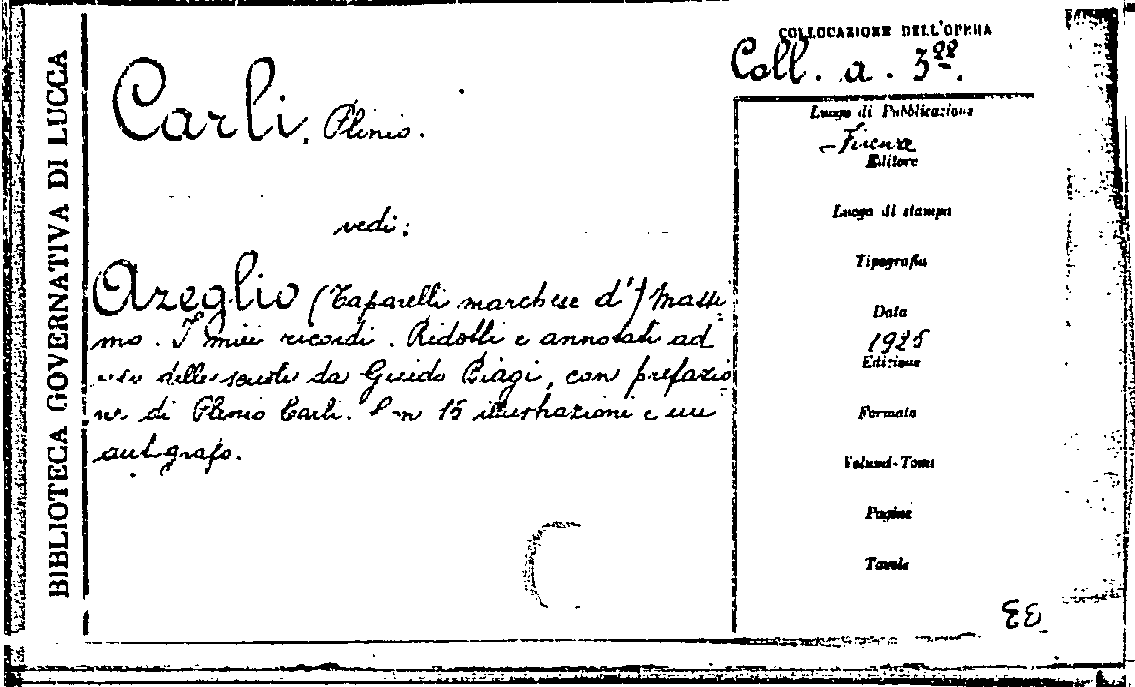 BIBLIOTECA GOVERNATIVA DI LUCCA
Carli, Plinio.
vedi:
Azeglio (Taparelli marchese d') Massi
mo. I miei ricordi. Ridotti e annotati ad
uso delle scuole da Guido Biagi, con prefazio
ne di Plinio Carli. Con 15 illustrazioni e un
autografo.
COLLOCAZIONE DELL'OPERA
Coll. a. 3
Luogo di Pubblicazione
Firenze
Editore
Luogo di stampa
Tipografia
Data
1925
Edizione
Formato
Volumi-Tomi
Pagine
Tavole